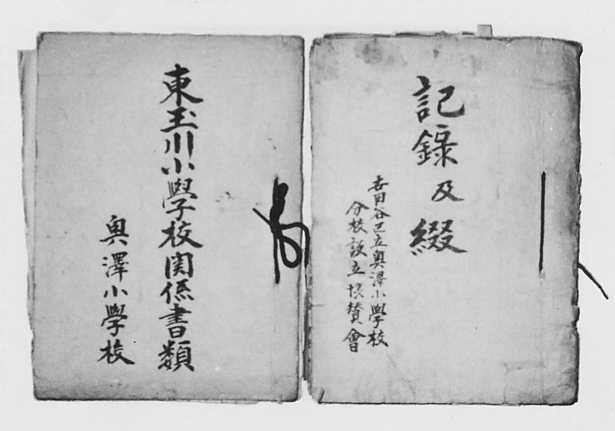 記錄及綴
世田谷区立奥澤小學校
分校設立協賛會
東玉川小學校関係書類
奥澤小學校